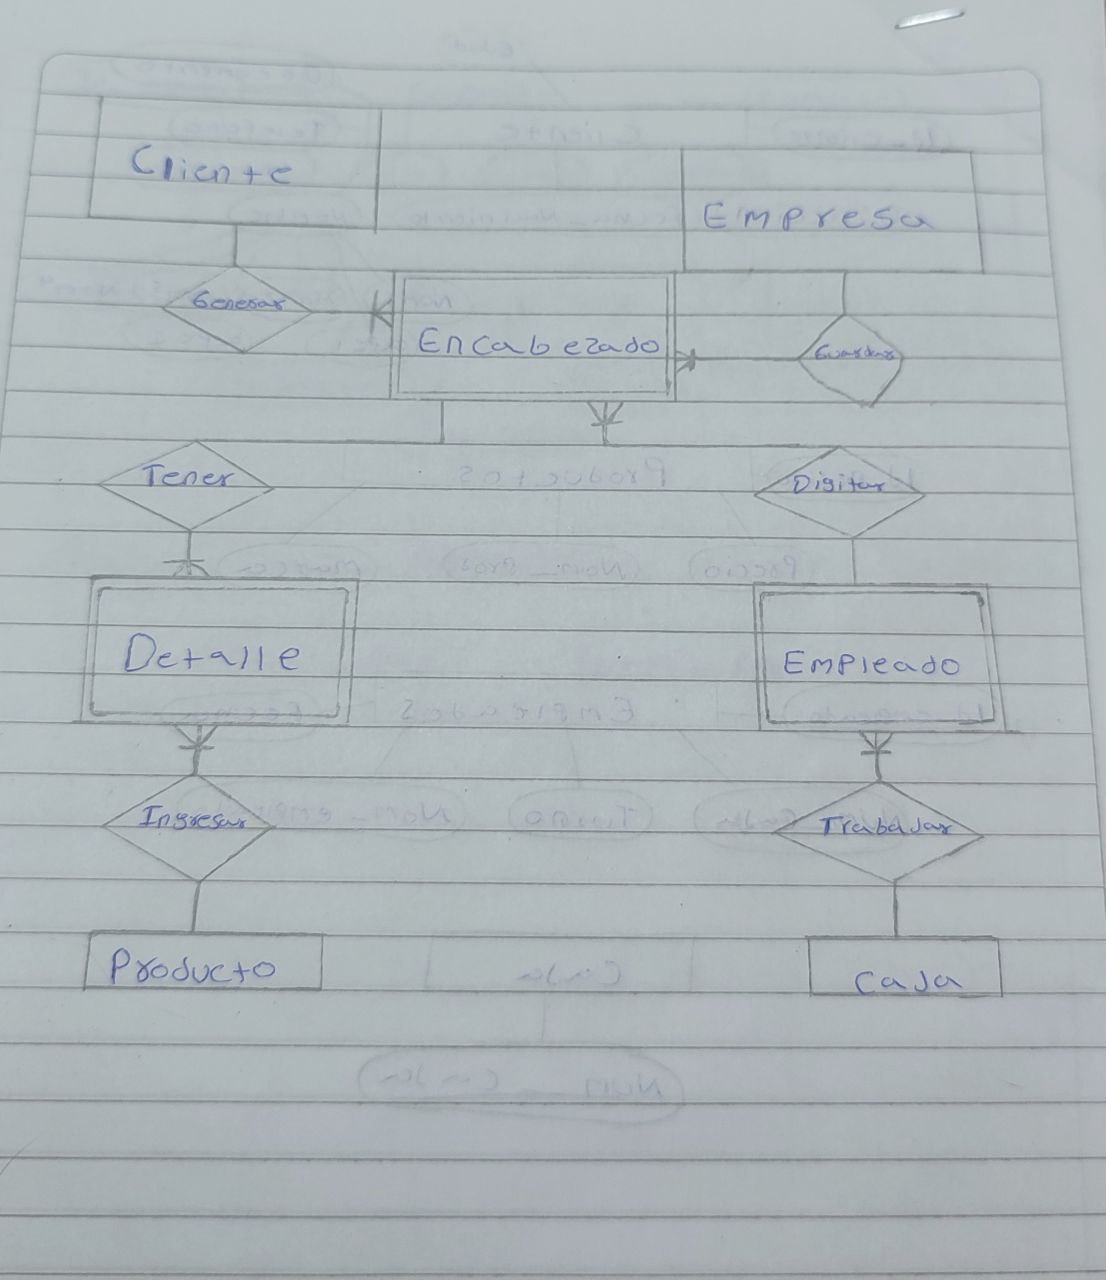 Cliente
Empresa
Generar
Encabezado
Guardar
Tener
Digitar
Detalle
Empleado
Ingresar
Trabajar
Producto
Caja